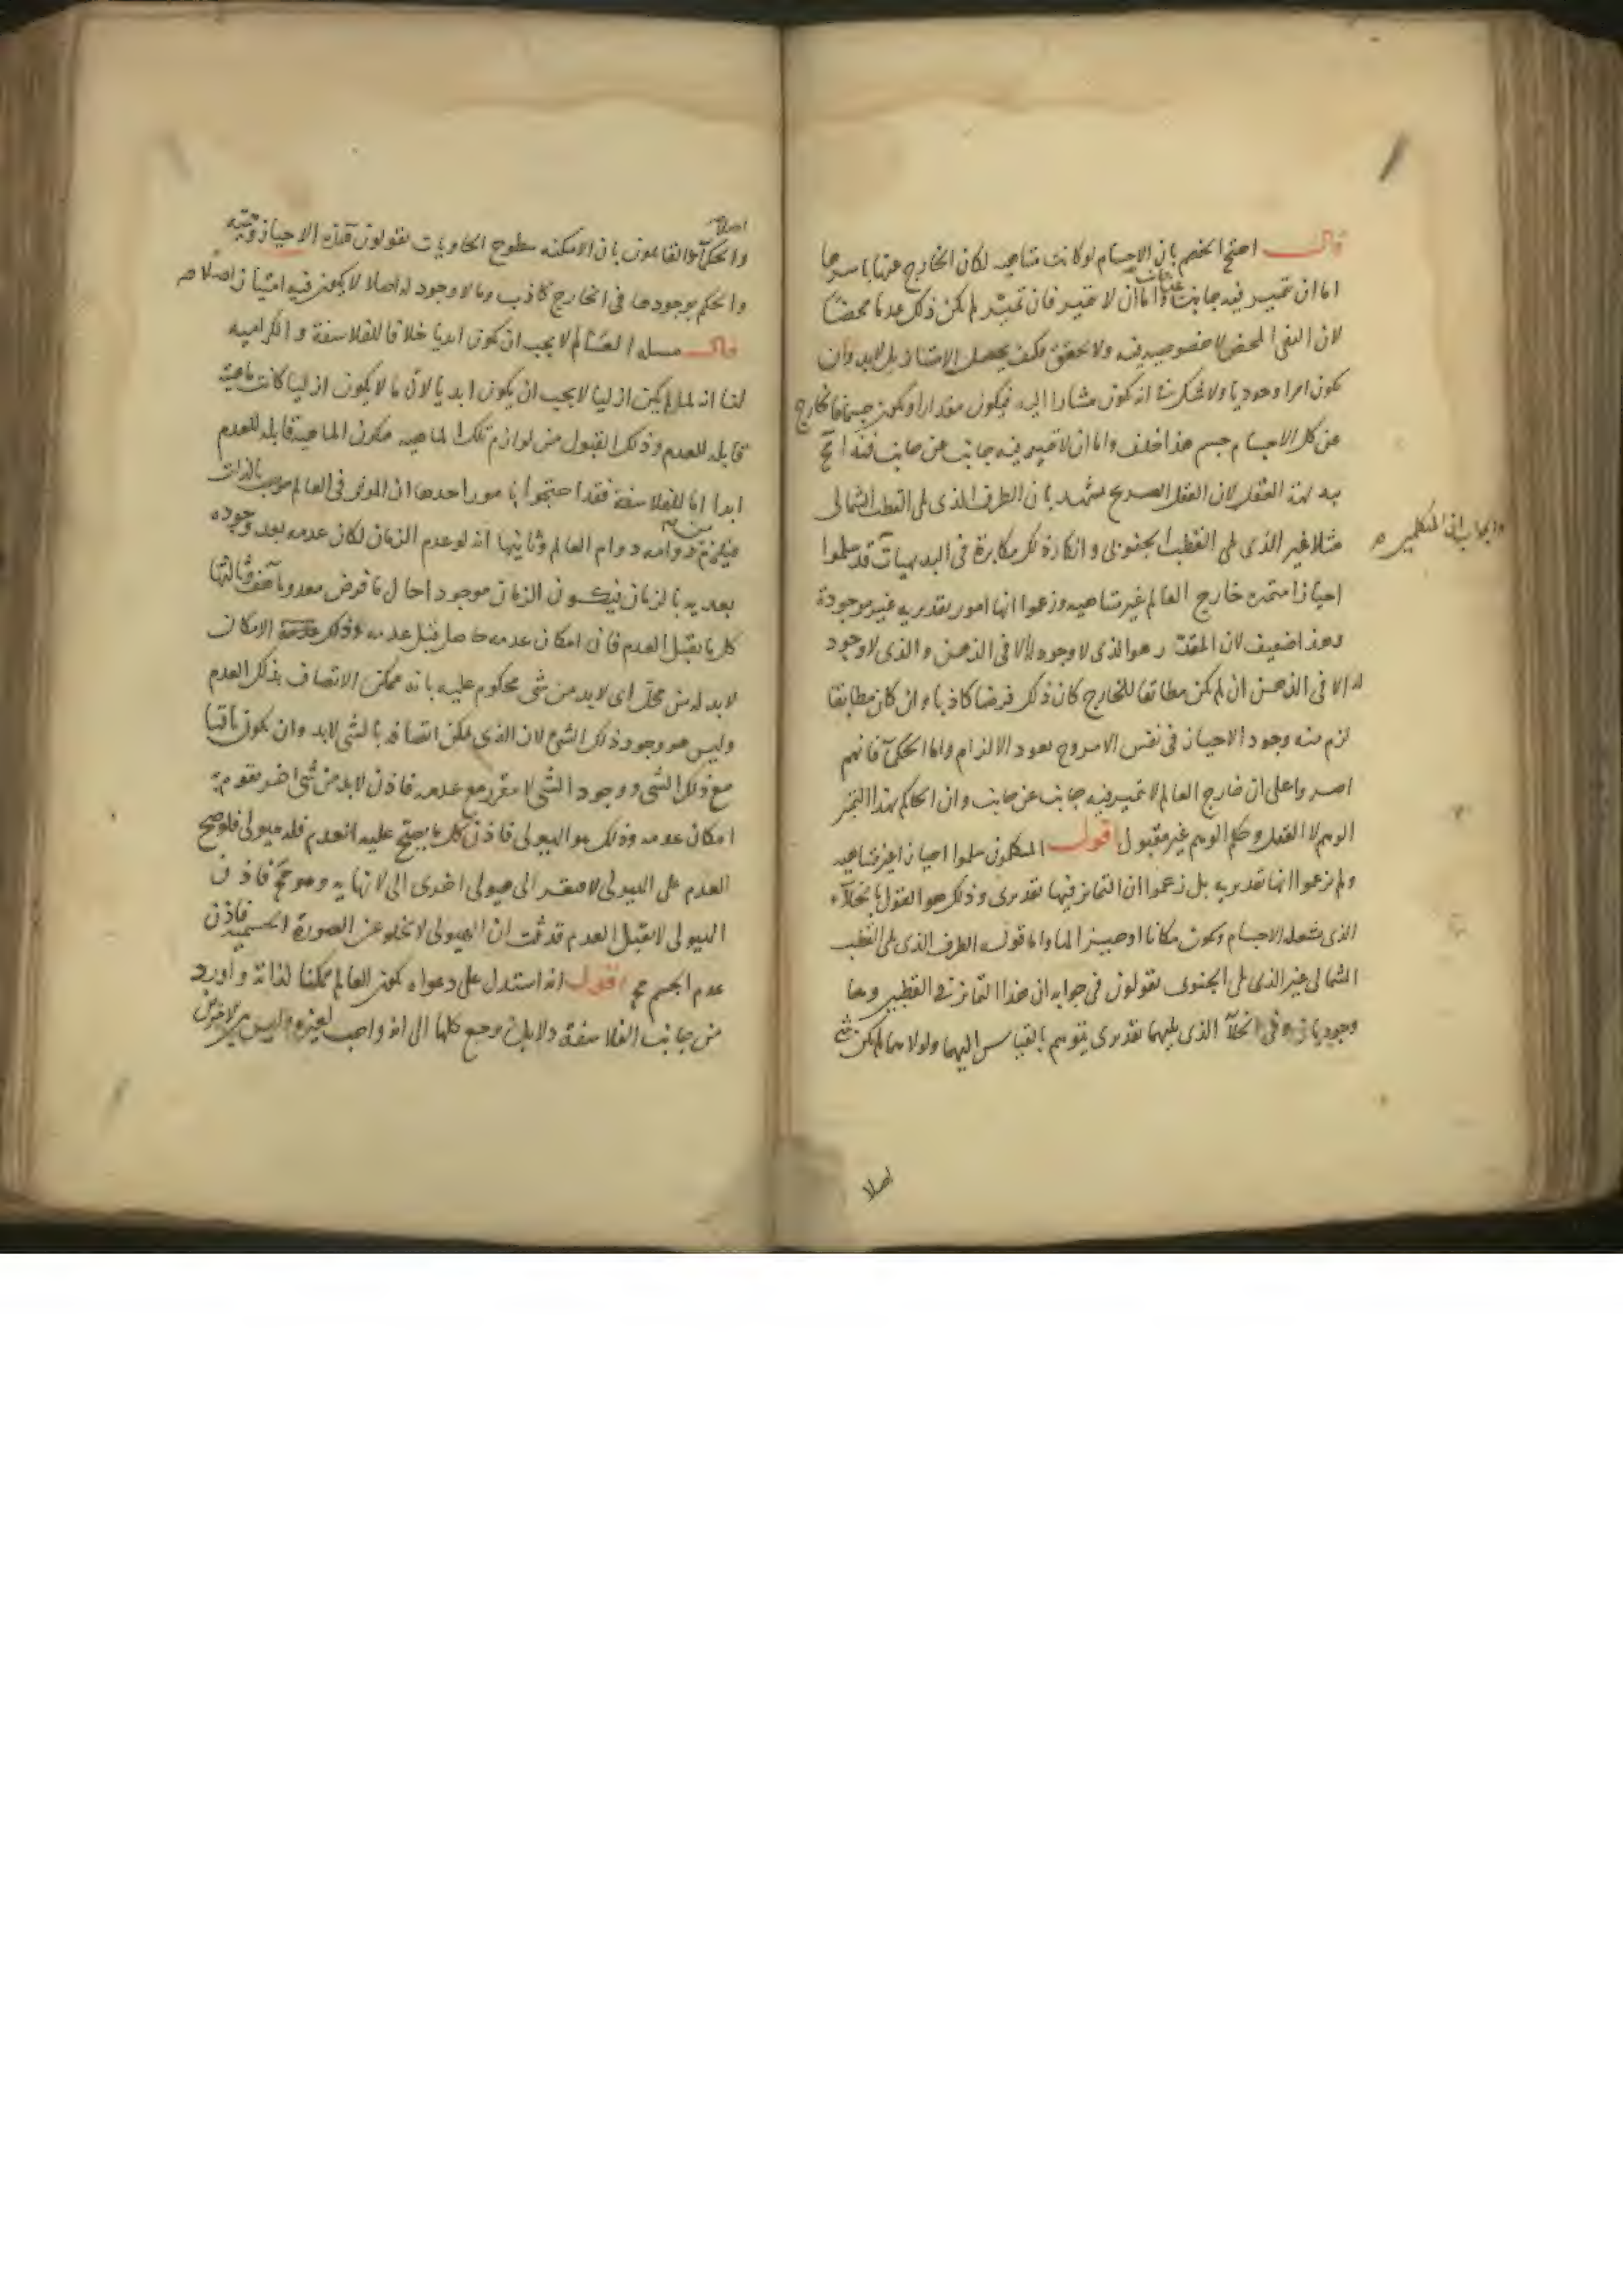 قال احتج الخصم بان الاجسام لو كانت متناهية لكان الخارج عنها باسرها
اما ان تميز فيه جانب عن جانب واما ان لا تميز فان تميز لم يكن ذلك عدما محضا
لان النفى المحض لا خصوصية فيه ولا تحقق فكيف يحصل الامتياز بل لابد وان
يكون امرا وجوديا ولا شك انه يكون مشارا اليه فيكون مقدارا ويكون جسما فالخارج
عن كل الاجسام جسم هذا خلف واما ان لا تميز فيه جانب عن جانب فهذا
بديهة العقل لان العقل الصريح يشهد بان الطرف الذى يلى القطب الشمالى
مثلا غير الذى يلى القطب الجنوبى وانكار ذلك مكابرة فى البديهيات قد سلموا
والجواب ان المتكلمين
احيازا متميزة خارج العالم غير متناهية وزعموا انها امور تقديرية غير موجودة
وهذا ضعيف لان المقدر هو الذى لا وجود له الا فى الذهن والذى لا وجود
له الا فى الذهن ان لم يكن مطابقا للخارج كان ذلك فرضا كاذبا وان كان مطابقا
لزم منه وجود الاحياز فى نفس الامر وح يعود الالزام واما الحكما فانهم
اصروا على ان خارج العالم لا تميز فيه جانب عن جانب وان الحاكم بهذا التميز
الوهم لا العقل وحكم الوهم غير مقبول اقول المتكلمون سلموا احيازا غير متناهية
ولم يزعموا انها تقديرية بل زعموا ان التمايز فيها تقديرى وذلك هو القول بالخلاء
الذى يشغله الاجسام ويكون مكانا او حيزا لها واما قوله الطرف الذى يلى القطب
الشمالى غير الذى يلى الجنوبى يقولون فى جوابه ان هذا التمايز فى القطبين وهما
وجوديان وفى الخلا الذى يليهما تقديرى يتوهم بالقياس اليهما ولولاهما لم يكن
اصلا
اصلا
والحكما القائلون بان الامكنة سطوح الحاويات يقولون هذه الاحياز وهمية
والحكم بوجودها فى الخارج كاذب وما لا وجود له اصلا لا يكون فيه امتياز اصلا
قال مسلة العالم لا يجب ان يكون ابديا خلافا للفلاسفة والكرامية
لنا انه لما لم يكن ازليا لا يجب ان يكون ابديا لان ما لا يكون ازليا كانت ماهيته
قابلة للعدم وذلك القبول من لوازم تلك الماهية فيكون الماهية قابلة للعدم
ابدا اما الفلاسفة فقد احتجوا بامور احدها ان الموثر فى العالم موجب بالذات
فيلزم من دوامه دوام العالم وثانيها انه لو عدم الزمان لكان عدمه بعد وجوده
بعدية بالزمان فيكون الزمان موجودا حال ما فرض معدوما هف وثالثها
كل ما يقبل العدم فان امكان عدمه حاصل قبل عدمه وذلك الامكان
لابد له من محل اى لابد من شى محكوم عليه بانه ممكن الاتصاف بذلك العدم
وليس هو وجود ذلك الشى لان الذى يمكن اتصافه بالشى لابد وان يكون باقيا
مع ذلك الشى ووجود الشى لا يتقرر مع عدمه فاذن لابد من شى اخر يقوم به
امكان عدمه وذلك هو الهيولى فاذن كل ما يصح عليه العدم فله هيولى فلو صح
العدم على الهيولى لافتقر الى هيولى اخرى الى لا نهاية وهو مح فاذن
الهيولى لا تقبل العدم قد ثبت ان الهيولى لا تخلو عن الصورة الجسمية فاذن
عدم الجسم مح اقول انه استدل على دعواه بكون العالم ممكنا لذاته واورد
من جانب الفلاسفة دلايل يرجع كلها الى انه واجب لغيره وليس بين